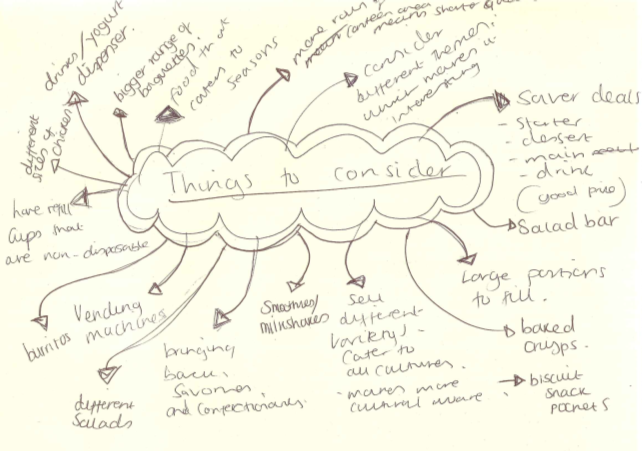 drinks/yogurt
dispenser.
bigger range of
baguettes.
food that
caters to
seasons
more rows of
canteen area
means shorter
consider
different themes.
which makes it
interesting
Saver deals
- starter
- dessert
- main
- drink
(good price)
different
sizes of
chicken
Things to consider
have refill
cups that
are non-disposable
Salad bar
Large portions
to fill.
burritos
Vending
machines
Smoothies/
milkshakes
sell
different
variety,
cater to
all cultures.
- makes more
cultural aware
baked
crisps.
bringing
back
Savouries
and confectionaries.
different
Salads
biscuit
snack
packets